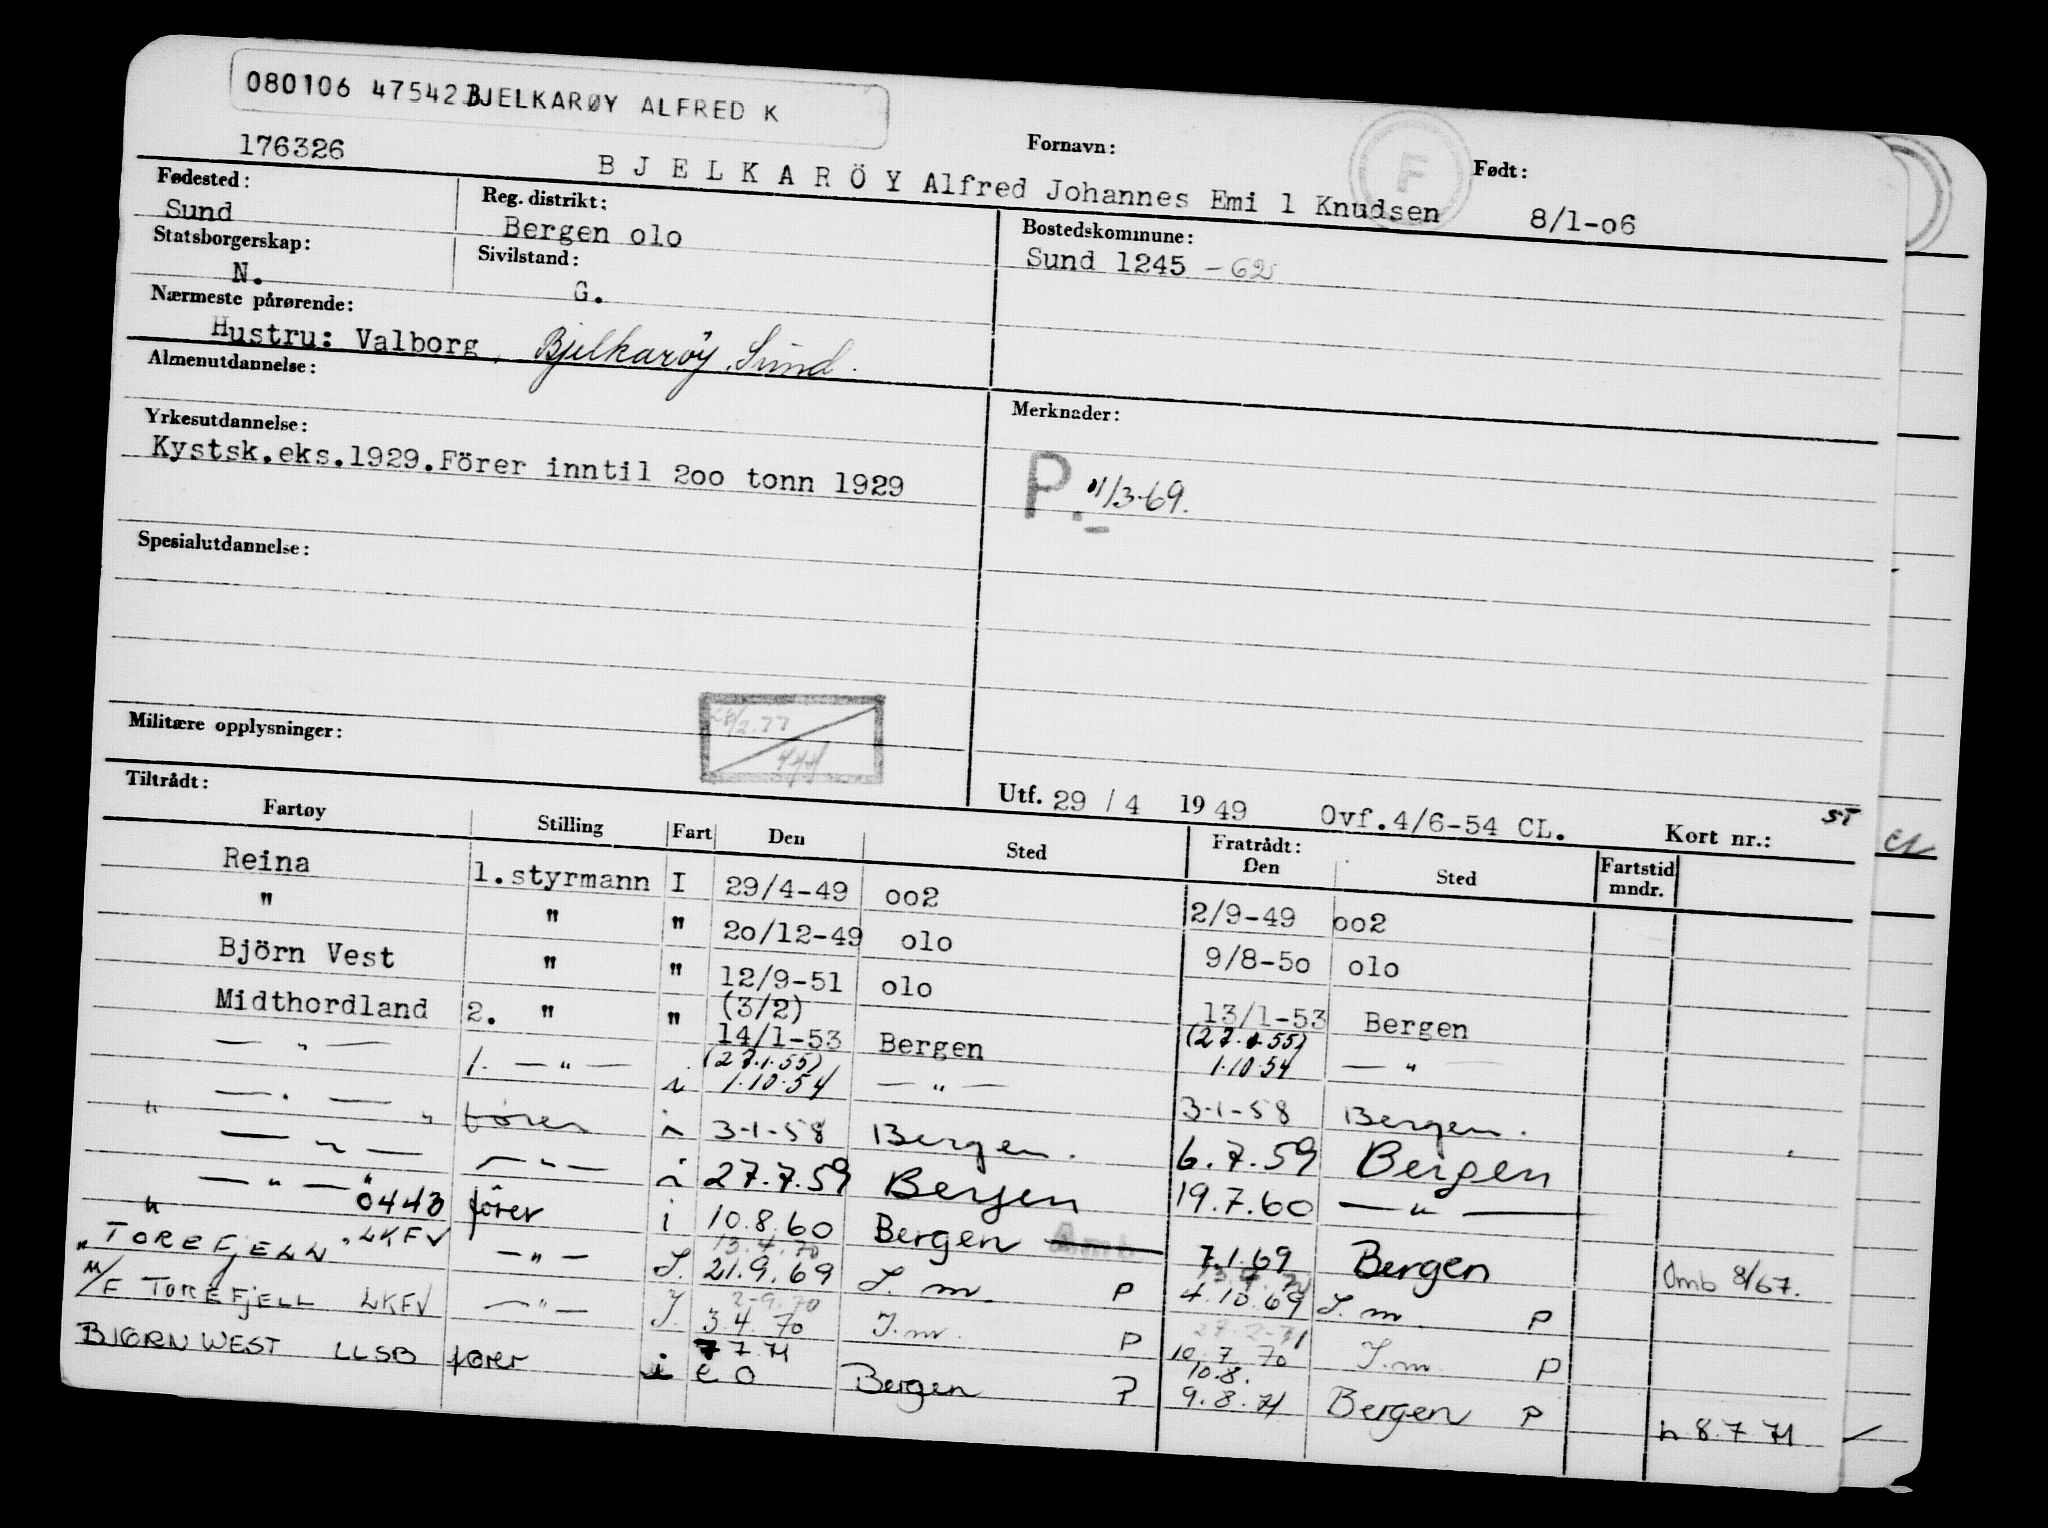 080106 47542 BJELKARØY ALFRED K
176326
Fornavn:
Født:
B J E L K A R Ö Y Alfred Johannes Emi l Knudsen 8/1-06
F
Fødested:
Sund
Reg. distrikt:
Bergen olo
Bostedskommune:
Sund 1245 - 62
Statsborgerskap:
N.
Sivilstand:
G.
Nærmeste pårørende:
Hustru: Valborg, Bjelkarøy, Sund.
Almenutdannelse:
Yrkesutdannelse:
Kystsk.eks.1929.Förer inntil 2oo tonn 1929
Merknader:
P. 1/3-69.
Spesialutdannelse:
Militære opplysninger:
Utf. 29 / 4 19 49 Ovf.4/6-54 CL. Kort nr.: ST
Tiltrådt:
Fartøy Stilling Fart Den Sted Fratrådt: Den Sted Fartstid mndr.
Reina 1.styrmann I 29/4-49 oo2 2/9-49 oo2
" " " 2o/12-49 olo 9/8-5o olo
Björn Vest " " 12/9-51 olo 13/1-53 Bergen
Midthordland 2. " " (3/2) 14/1-53 Bergen (27.1.55) 1.10.54 — " —
— " — 1. — " — i (27.1.55) 1.10.54 — " — 3-1-58 Bergen.
— " — fører i 3-1-58 Bergen. 6.7.59 Bergen
" — " — — " — i 27.7.59 Bergen 19.7.60 — " —
— " — " 0443 fører i 10.8.60 Bergen 7.1.69 Bergen Omb 8/67.
" TOREFJELL " LKFV — " — I. 13.4.70 21.9.69 I. m. P 4.10.69 I. m. P
M/F TOREFJELL LKFV — " — I. 2-9.70 3.4.70 I. m. P 27.2-71 10.7.70 I. m. P
BJØRN WEST LLSB fører i 7.7.71 e O Bergen P 10.8. 9.8.71 Bergen P h 8.7.71